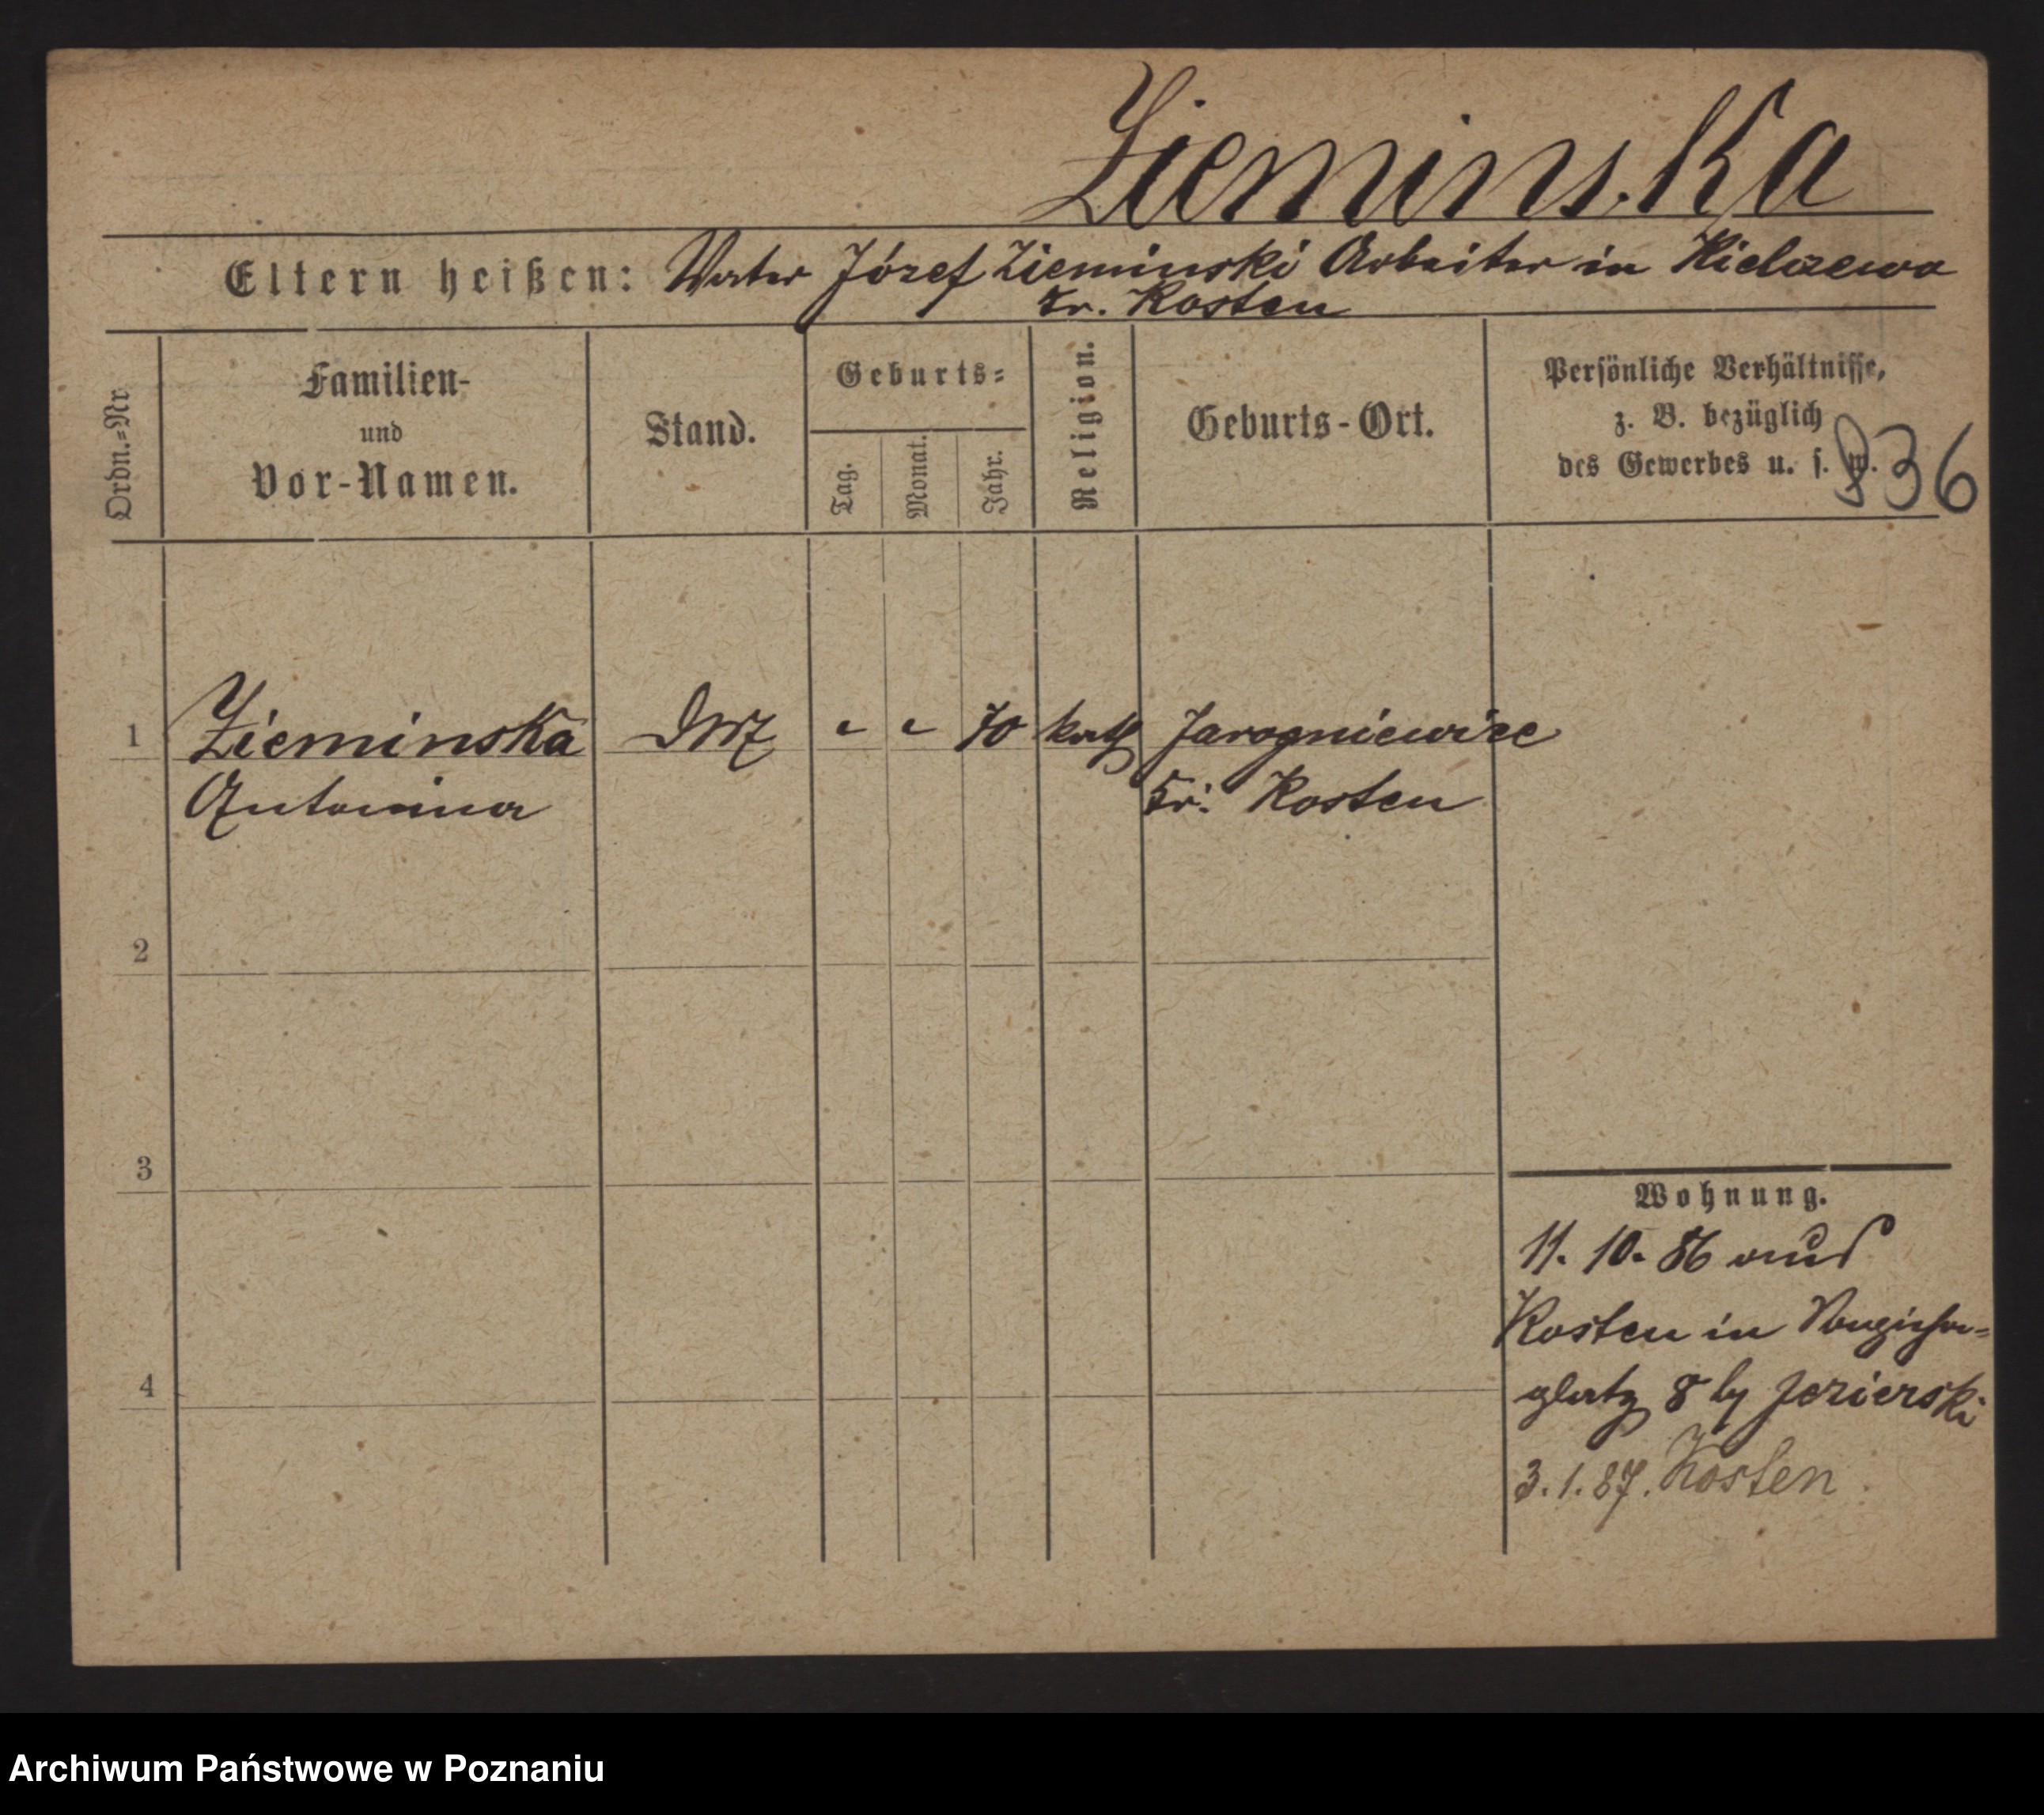 Zieminska
Eltern heißen: Vater Józef Zieminski Arbeiter in Kielczewo
Kr. Kosten
Ordn.=Nr.
Familien-
und
Vor-Namen.
Stand.
Geburts=
Tag.
Monat.
Jahr.
Religion.
Geburts-Ort.
Persönliche Verhältnisse,
z. B. bezüglich
des Gewerbes u. s. w.
836
1 Zieminska 70 kath Jarogniewice
Antonina Kr. Kosten
2
3
4
Wohnung.
11. 10. 86 aus
Kosten in
platz 8 by Jezierski
3. 1. 87. Kosten.
Archiwum Państwowe w Poznaniu